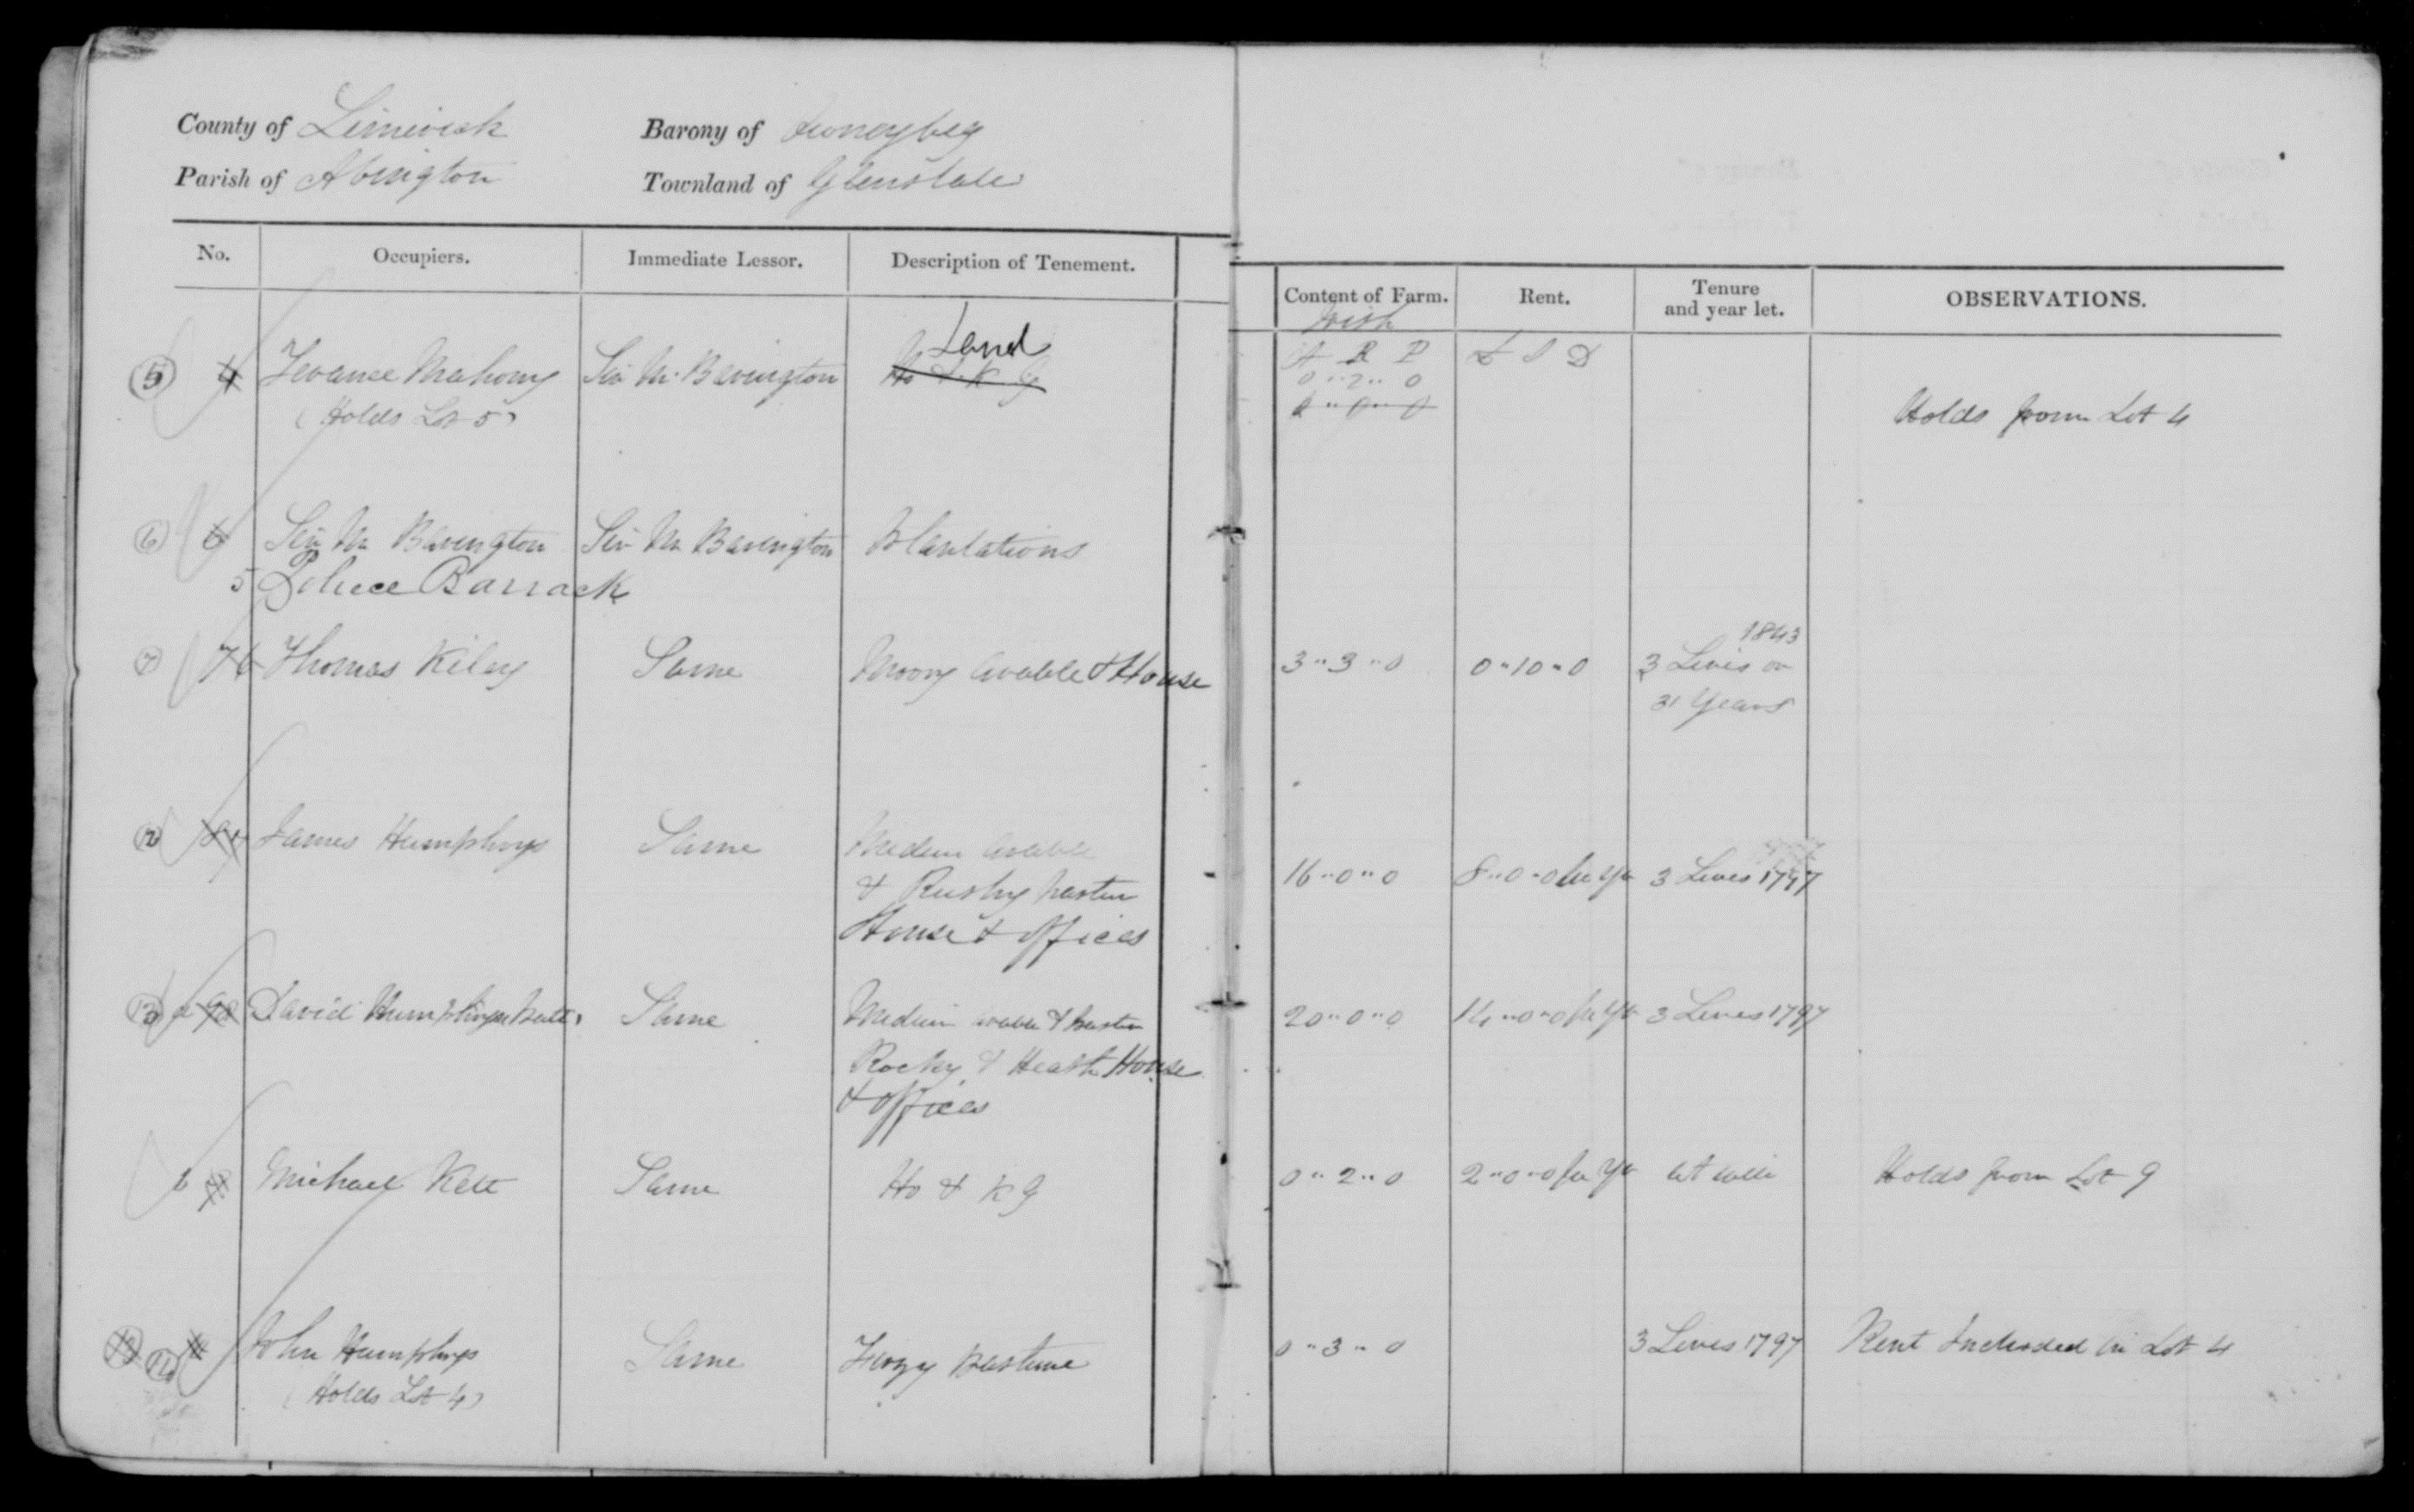 County of Limerick Barony of Owneybeg
Parish of Abington Townland of Glenstale
No. Occupiers. Immediate Lessor. Description of Tenement. Content of Farm. Rent. Tenure and year let. OBSERVATIONS.
Irish
A R P £ S D
5 4 Mahony Sir M. Barrington Land Ho & K G 0 " 2 " 0
(Holds Lot 5) 0 " 0 " 0 Holds from Lot 4
6 6 Sir M Barrington Sir M Barrington Plantations
5 Police Barrack
7 7 6 Thomas Kiley Same Moory arable & House 3 " 3 " 0 0 " 10 " 0 3 Lives or 1843
31 Years
12 James Humphrys Same Medium arable
& Rushy pasture 16 " 0 " 0 8 " 0 " 0 per Yr 3 Lives 1797
House & offices
13 a David Humphrys Same Medium arable & pasture 20 " 0 " 0 14 " 0 " 0 per Yr 3 Lives 1797
Rocky & Heath House
& offices
b Michael Kett Same Ho & K G 0 " 2 " 0 2 " 0 " 0 per Yr at will Holds from Lot 9
14 John Humphrys Same Furzy Pasture 0 " 3 " 0 3 Lives 1797 Rent Included in Lot 4
(Holds Lot 4)